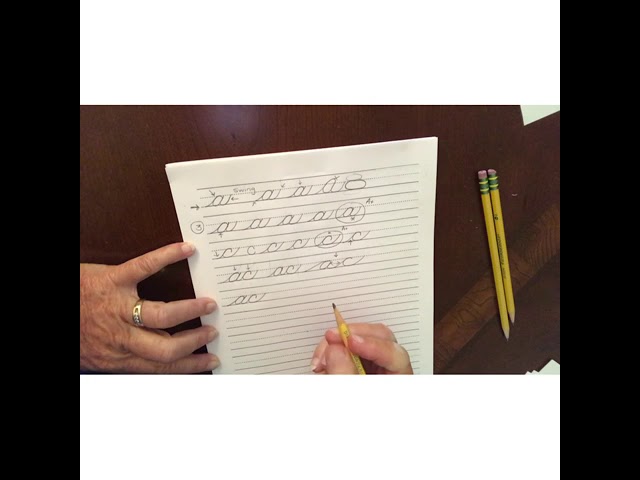 a Swing a a a 8
3 a a a a a A+
c c c c c A+ c
ac ac ac
ac